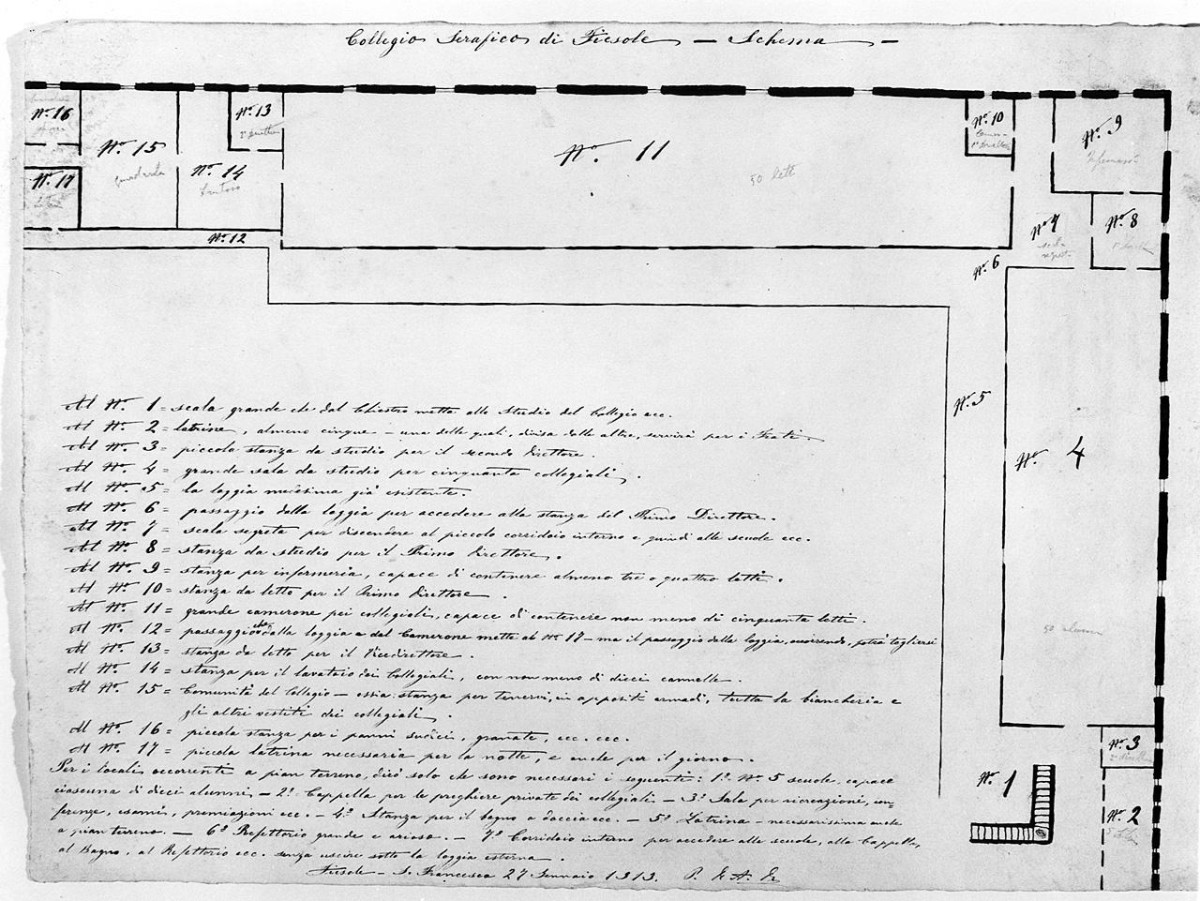 Collegio Serafico di Fiesole — Schema —
Nº 16
Nº 15
guardaroba
Nº 13
Nº 14
Nº 17
Nº 12
Nº 11
50 letti
Nº 10
Nº 9
Nº 7
Nº 8
Nº 6
Nº 5
Nº 4
50 alunni
Nº 3
Nº 1
Nº 2
Al Nº 1 = scala grande che dal Chiostro mette allo Studio del Collegio ecc.
Al Nº 2 = latrine, almeno cinque – una delle quali, divisa dalle altre, servirà per i Frati.
Al Nº 3 = piccola stanza da studio per il secondo Direttore.
Al Nº 4 = grande sala da studio per cinquanta collegiali.
Al Nº 5 = la loggia medesima già esistente.
Al Nº 6 = passaggio dalla loggia per accedere alla stanza del Primo Direttore.
Al Nº 7 = scala segreta per discendere al piccolo corridoio interno e quindi alle scuole ecc.
Al Nº 8 = stanza da studio per il Primo Direttore.
Al Nº 9 = stanza per infermeria, capace di contenere almeno tre o quattro letti.
Al Nº 10 = stanza da letto per il Primo Direttore.
Al Nº 11 = grande camerone pei collegiali, capace di contenere non meno di cinquanta letti.
Al Nº 12 = passaggio che dalla loggia e dal Camerone mette al Nº 17 – ma il passaggio della loggia, occorrendo, potrà togliersi
Al Nº 13 = stanza da letto per il Vicedirettore.
Al Nº 14 = stanza per il lavatoio dei Collegiali, con non meno di dieci cannelle.
Al Nº 15 = Comunità del Collegio – ossia stanza per tenervi, in appositi armadi, tutta la biancheria e
gli altri vestiti dei collegiali.
Al Nº 16 = piccola stanza per i panni sudici, granate, ecc. ecc.
Al Nº 17 = piccola latrina necessaria per la notte, e anche per il giorno.
Per i locali occorrenti a pian terreno, dirò solo che sono necessari i seguenti: 1º Nº 5 scuole, capace
ciascuna di dieci alunni, – 2º Cappella per le preghiere private dei collegiali – 3º Sala per ricreazioni, con-
ferenze, esami, premiazioni ecc. – 4º Stanza per il bagno a doccia ecc. – 5º Latrina – necessarissima anche
a pian terreno. — 6º Refettorio grande e arioso. – 7º Corridoio interno per accedere alle scuole, alla Cappella,
al Bagno, al Refettorio ecc. senza uscire sotto la loggia esterna.
Fiesole – S. Francesco 27 Gennaio 1913.